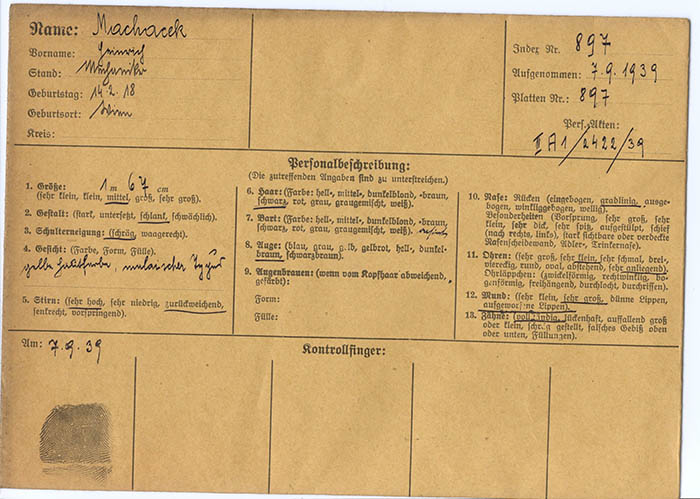 Name: Machacek
Vorname: Heinrich
Stand: Mechaniker
Geburtstag: 14.2.18
Geburtsort: Wien
Kreis:
Index Nr. 897
Aufgenommen: 7.9.1939
Platten Nr.: 897
Pers. Akten:
II A1/2422/39
Personalbeschreibung:
(Die zutreffenden Angaben sind zu unterstreichen.)
1. Größe: 1 m 67 cm
(sehr klein, klein, mittel, groß, sehr groß).
2. Gestalt: (stark, untersetzt, schlank, schwächlich).
3. Schulterneigung: (schräg, waagerecht).
4. Gesicht: (Farbe, Form, Fülle).
gelbe Hautfarbe,
5. Stirn: (sehr hoch, sehr niedrig, zurückweichend,
senkrecht, vorspringend).
6. Haar: (Farbe: hell-, mittel-, dunkelblond, -braun,
schwarz, rot, grau, graugemischt, weiß).
7. Bart: (Farbe: hell-, mittel-, dunkelblond, -braun,
schwarz, rot, grau, graugemischt, weiß).
8. Auge: (blau, grau, gelb, gelbrot, hell-, dunkel-
braun, schwarzbraun).
9. Augenbrauen: (wenn vom Kopfhaar abweichend,
gefärbt):
Form:
Fülle:
10. Nase: Rücken (eingebogen, gradlinig, ausge-
bogen, winkliggebogen, wellig).
Besonderheiten (Vorsprung, sehr groß, sehr
klein, sehr dick, sehr spitz, aufgestülpt, schief
(nach rechts, links), stark sichtbare oder verdeckte
Nasenscheidewand, Adler-, Trinkernase).
11. Ohren: (sehr groß, sehr klein, sehr schmal, drei-,
viereckig, rund, oval, abstehend, sehr anliegend).
Ohrläppchen: (zwickelförmig, rechtwinklig, bo-
genförmig, freihängend, durchlocht, durchrissen).
12. Mund: (sehr klein, sehr groß, dünne Lippen,
aufgeworfene Lippen).
13. Zähne: (vollständig, lückenhaft, auffallend groß
oder klein, schräg gestellt, falsches Gebiß oben
oder unten, Füllungen).
Am: 7.9.39
Kontrollfinger: